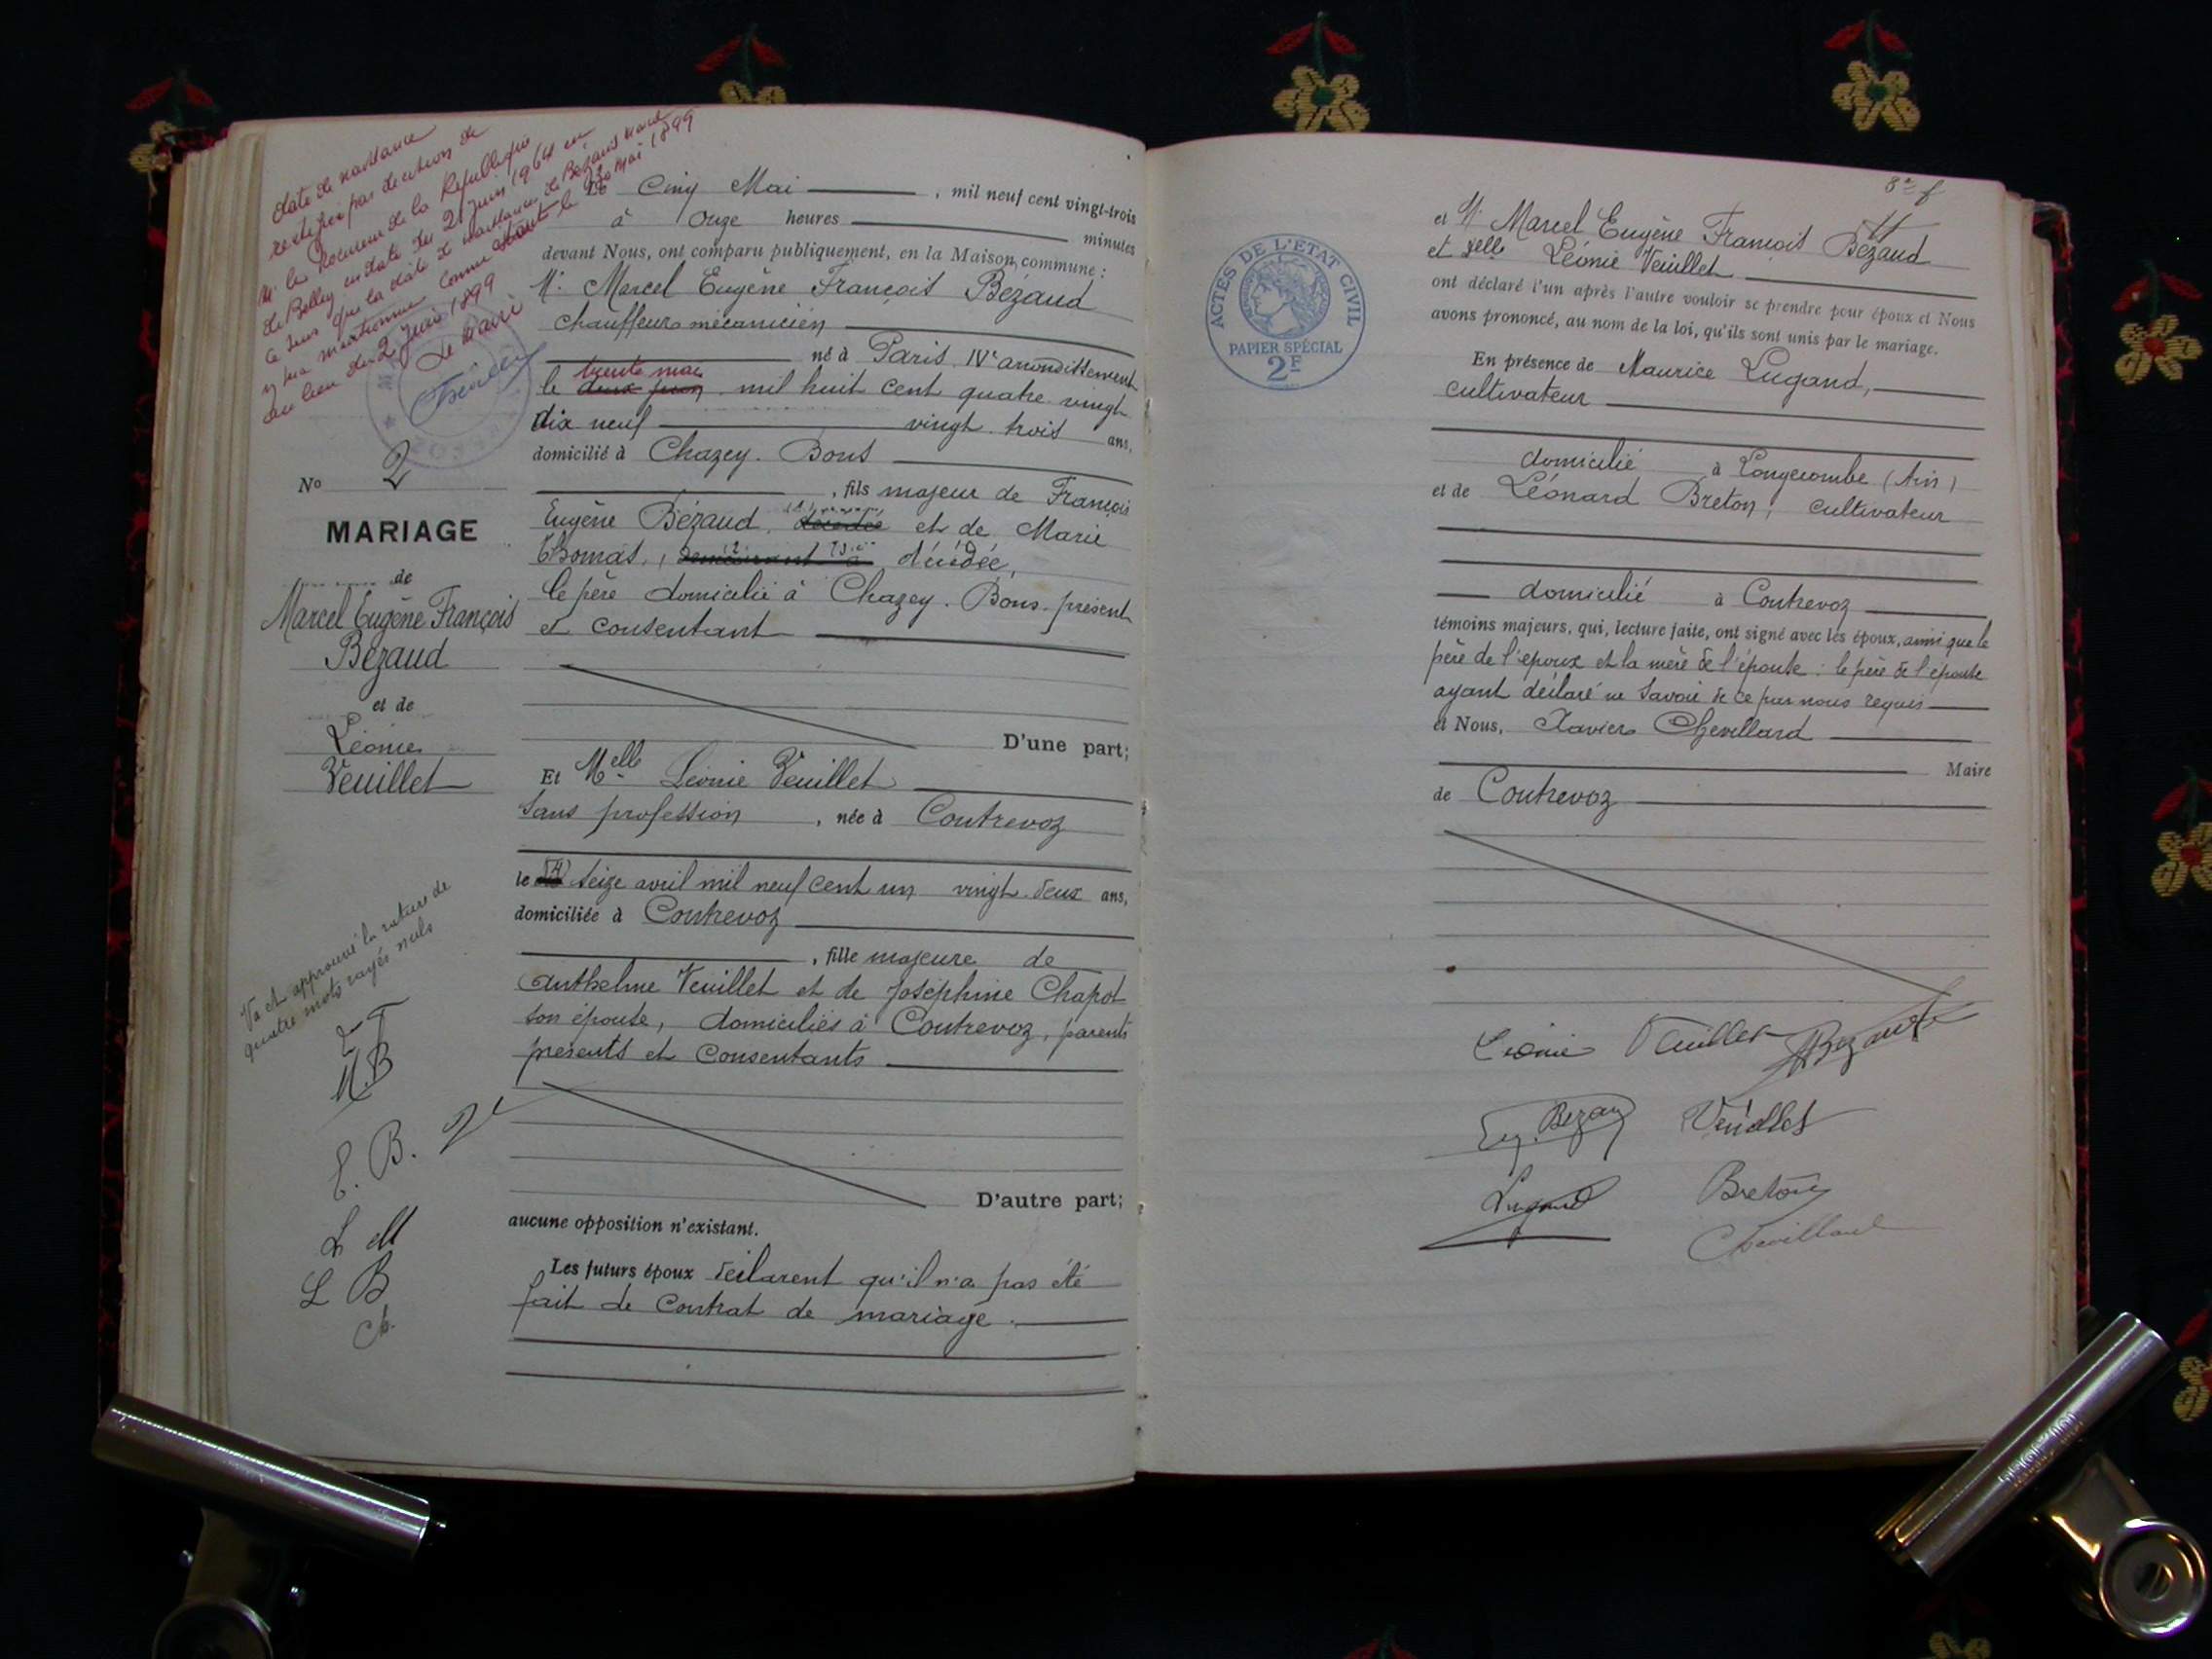 date de naissance
rectifiée par décision de
M. le Procureur de la République
de Belley en date du 2 juin 1964 en
ce sens que la date de naissance de Bezaud Marcel
y sera mentionnée comme étant le 30 Mai 1899
au lieu du 2 Juin 1899
Le Maire
No 2
MARIAGE
de
Marcel Eugène François
Bezaud
et de
Léonie
Veuillet
Vu et approuvé la rature de
quatre mots rayés nuls
M.B
E. B.
L M
L B
Ch.
Le Cinq Mai , mil neuf cent vingt-trois
à Onze heures minutes
devant Nous, ont comparu publiquement, en la Maison commune :
M. Marcel Eugène François Bezaud
chauffeur mécanicien
né à Paris IVe arrondissement
trente mai
le deux juin mil huit cent quatre vingt
dix neuf vingt trois ans,
domicilié à Chazey. Bons
, fils majeur de François
Eugène Bézaud, décédé et de Marie
Thomas, demeurant à décédée,
le père domicilié à Chazey. Bons présent
et consentant
D'une part;
Et Melle Léonie Veuillet
sans profession , née à Contrevoz
le seize avril mil neuf cent un vingt deux ans,
domiciliée à Contrevoz
, fille majeure de
Anthelme Veuillet et de Joséphine Chapot
son épouse, domiciliés à Contrevoz, parents
présents et consentants
D'autre part;
aucune opposition n'existant.
Les futurs époux déclarent qu'il n'a pas été
fait de contrat de mariage.
8e f
ACTES DE L'ÉTAT CIVIL
PAPIER SPÉCIAL
2F
et M. Marcel Eugène François Bezaud
et Delle Léonie Veuillet
ont déclaré l'un après l'autre vouloir se prendre pour époux et Nous
avons prononcé, au nom de la loi, qu'ils sont unis par le mariage.
En présence de Maurice Lugand,
cultivateur
domicilié à Longecombe (Ain)
et de Léonard Breton, cultivateur
domicilié à Contrevoz
témoins majeurs, qui, lecture faite, ont signé avec les époux, ainsi que le
père de l'époux et la mère de l'épouse : le père de l'épouse
ayant déclaré ne savoir de ce par nous requis
et Nous, Xavier Chevillard
Maire
de Contrevoz
Léonie Veuillet MBezaud
Eug. Bezaud Veuillet
Lugand Breton
Chevillard